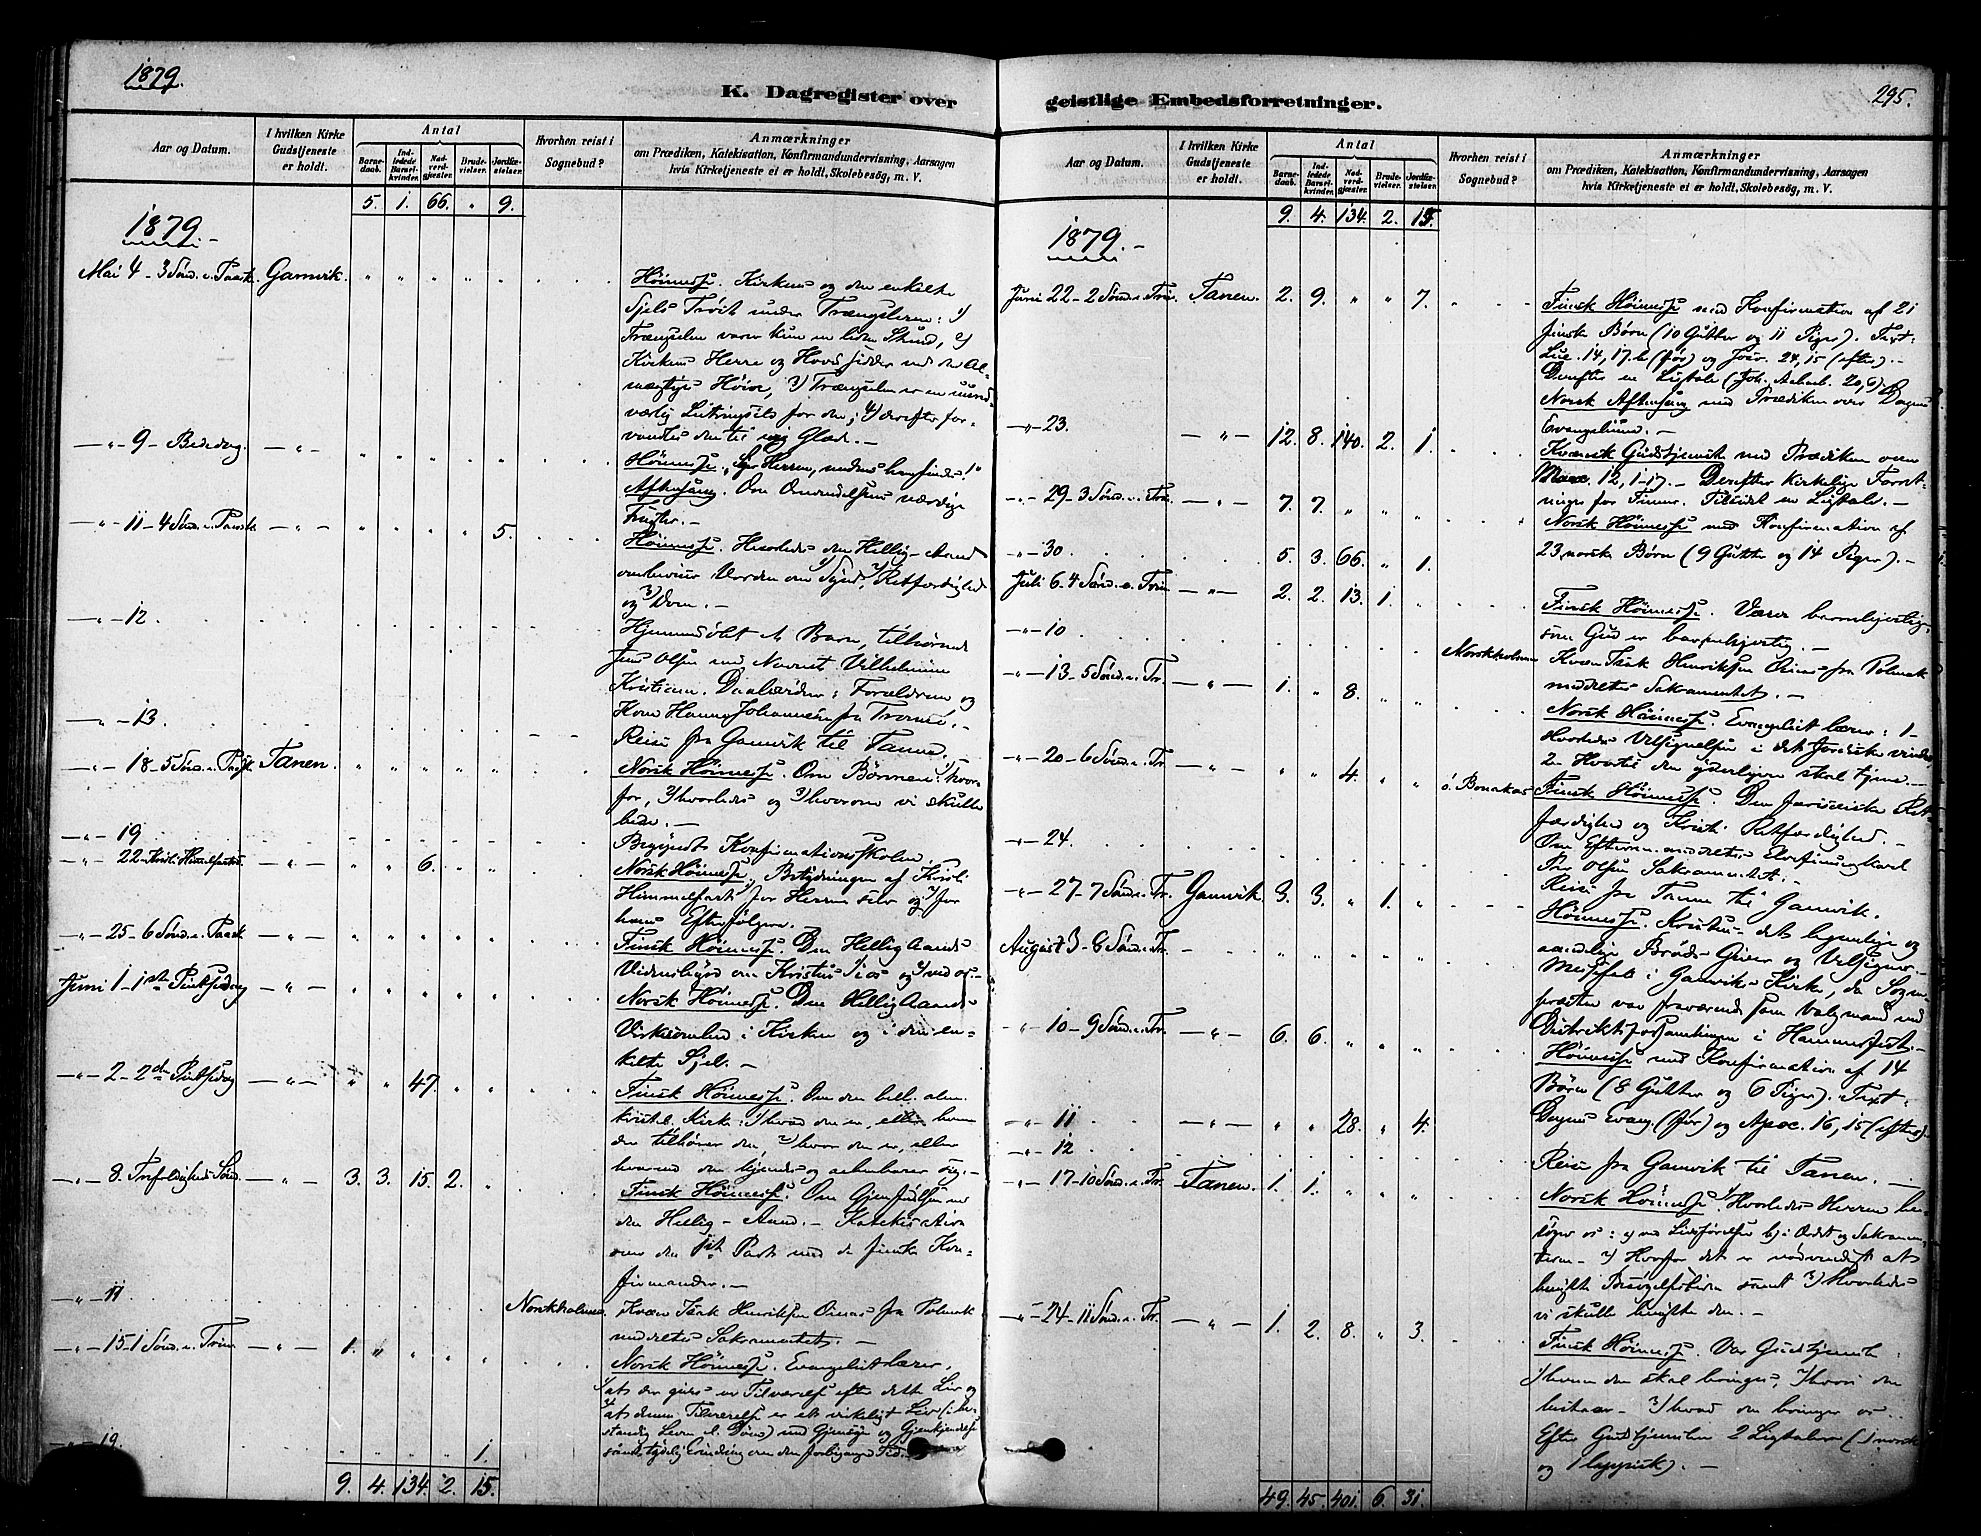 1879.
K. Dagregister over
Aar og Datum.
I hvilken Kirke Gudstjeneste er holdt.
Antal
Barne-daab.
Ind-ledede Barsel-kvinder.
Nad-verd-gjæster.
Brude-vielser.
Jordfæ-stelser.
Hvorhen reist i Sognebud?
Anmærkninger
om Prædiken, Katekisation, Konfirmandundervisning, Aarsagen
hvis Kirketjeneste ei er holdt, Skolebesøg, m. V.
5. 1. 66. " 9.
1879.-
Mai 4 - 3 Sønd. e. Paask. Gamvik. " " " " "
Høimesse. Kirkens og den enkelte
Sjels Trøst under Trængslerne: 1)
Trængselen varer kun en liden Stund, 2)
Kirkens Herre og Hoved sidder ved de Al-
mægtiges Høire, 3) Trængselen er en uund-
værlig Lutringsild for den; 4) derefter for-
vandles den til evig Glæde. -
-"- 9 - Bededag. -"- " " " " "
Høimesse. Søger Herren, medens han findes!"
Aftensang. Om Omvendelsens værdige
Frugter. -
-"- 11 - 4 Sønd. e. Paask. -"- " " " " 5.
Høimesse. Hvorledes den Hellig-Aand
overbeviser Verden om 1) Synd, 2) Retfærdighed
og 3) Dom. -
-"- 12.
Hjemmedøbt et Barn, tilhørende
Jens Olsen med Navnet Vilhelmine
Kristiane. Daabsvidner: Forældrene og
Kone Hanna Johannesen fra Tromsø. -
-"- 13.
Reise fra Gamvik til Tanen. -
-"- 18 - 5 Sønd. e. Paask. Tanen. " " " " "
Norsk Høimesse. Om Bønnen: 1) hvor-
for, 2) hvorledes og 3) hvorom vi skulle
bede. -
-"- 19
Begyndt Konfirmationsskolen.
-"- 22 - Kristi Himmelfartsd. -"- " " 6. " "
Norsk Høimesse. Betydningen af Kristi
Himmelfart 1) for Herren selv og 2) for
hans Efterfølgere.
-"- 25 - 6 Sønd. e. Paask. -"- " " " " "
Finsk Høimesse. Den Hellig Aands
Vidnesbyrd om Kristus i os og ved os. -
Juni 1 - 1ste Pintsedag -"- " " " " "
Norsk Høimesse. Den Hellig Aands
Virksomhed i Kirken og i den en-
kelte Sjel. -
-"- 2 - 2den Pintsedag -"- " " 47. " "
Finsk Høimesse. Om den hell. alm.
kristel. Kirke: 1) hvad den er, eller hvem
der tilhører den, 2) hvor den er, eller
hvorved den kjendes og aabenbarer sig. -
-"- 8. Trefoldigheds Sønd. -"- 3. 3. 15. 2. "
Finsk Høimesse. Om Gjenfødelsen ved
den Hellig-Aand. - Katekisation
over den 1ste Part med de finske Kon-
firmander. -
-"- 11 Norskholmen.
Kvæn Isak Henriksen Oinas fra Polmak
meddeltes Sakramentet. -
-"- 15 - 1 Sønd. e. Trin. -"- 1. " " " "
Norsk Høimesse. Evangeliet lærer,
1) at der gives en Tilværelse efter dette Liv og
2) at denne Tilværelse er et virkeligt Liv (i be-
standig Leven el. Døen) med Gjensyn og Gjenkjendelse
samt tydelig Erindring om den forbigangne Tid.
-"- 19. 1.
9. 4. 134. 2. 15.
geistlige Embedsforretninger.
295.
Aar og Datum.
I hvilken Kirke Gudstjeneste er holdt.
Antal
Barne-daab.
Ind-ledede Barsel-kvinder.
Nad-verd-gjæster.
Brude-vielser.
Jordfæ-stelser.
Hvorhen reist i Sognebud?
Anmærkninger
om Prædiken, Katekisation, Konfirmandundervisning, Aarsagen
hvis Kirketjeneste ei er holdt, Skolebesøg, m. V.
9. 4. 134. 2. 15.
1879.-
Juni 22 - 2 Sønd. e. Trin. Tanen. 2. 9. " " 7.
Finsk Høimesse med Konfirmation af 21
finske Børn (10 Gutter og 11 Piger). Text:
Luc. 14, 17.b (før) og Josv. 24, 15 (efter). -
Derefter en Ligtale (Joh. Aabenb. 20,6)
Norsk Aftensang med Prædiken over Dagens
Evangelium. -
-"- 23. -"- 12. 8. 140. 2. 1.
Kvænsk Gudstjeneste med Prædiken over
Marc. 12, 1-17. - Derefter kirkelige Forret-
ninger for Finner. Tilsidst en Ligtale. -
-"- 29 - 3 Sønd. e. Trin. -"- 7. 7. " " "
Norsk Høimesse med Konfirmation af
23 norske Børn (9 Gutter og 14 Piger). -
-"- 30 5. 3. 66. " 1.
Juli 6. 4 Sønd. e. Trin. -"- 2. 2. 13. 1.
Finsk Høimesse. Værer barmhjertig,
som Gud er barmhjertig. -
-"- 10 Norskholmen
Kvæn Isak Henriksen Oinas fra Polmak
meddeltes Sakramentet. -
-"- 13 - 5 Sønd. e. Tr. -"- 1. " 8. " "
Norsk Høimesse. Evangeliet lærer: 1-
Hvorledes Velsignelsen i det Jordiske vindes
2- Hvortil den yderligere skal tjene. -
-"- 20 - 6 Sønd. e. Tr. -"- " " 4. " " Bonakas
Finsk Høimesse. Den farisæiske Ret-
færdighed og Kristi Retfærdighed. -
Om Efterm. meddeltes Elvefinnen Karl
Per Olsen Sakramentet. -
-"- 24.
Reise fra Tanen til Gamvik.
-"- 27 - 7 Sønd. e. Tr. Gamvik. 3. 3. " 1. "
Høimesse. Kristus - det legemlige og
aandelige Brøds Giver og Velsigner. -
August 3 - 8 Sønd. e. Tr. - " " " " "
Messefald i Gamviks Kirke, da Sogne-
præsten var fraværende som Valgmand ved
Distriktsforsamlingen i Hammerfest. -
-"- 10 - 9 Sønd. e. Tr. -"- 6. 6. " " "
Høimesse med Konfirmation af 14
Børn (8 Gutter og 6 Piger). Text:
Dagens Evang. (før) og Apoc. 16, 15 (efter). -
-"- 11 -"- " " 28. " 4.
-"- 12
Reise fra Gamvik til Tanen. -
-"- 17 - 10 Sønd. e. Tr. Tanen. 1. 1. " " "
Norsk Høimesse. 1) Hvorledes Herren be-
søger os: a) ved Livsførelser b) i Ordet og Sakramen-
terne - 2) Hvorfor det er nødvendigt at
benytte Besøgelsestiden samt 3) Hvorledes
vi skulle benytte den. -
-"- 24 - 11 Sønd. e. Tr. -"- 1. 2. 8. " 3.
Finsk Høimesse. Vor Gudstjeneste:
1) hvem den skal bringes, 2) hvori den
bestaar - 3) hvad den bringer os.
Efter Gudstjenesten 2 Ligtaler (1 norsk
og 1 lappisk). -
49. 45. 401. 6. 31.